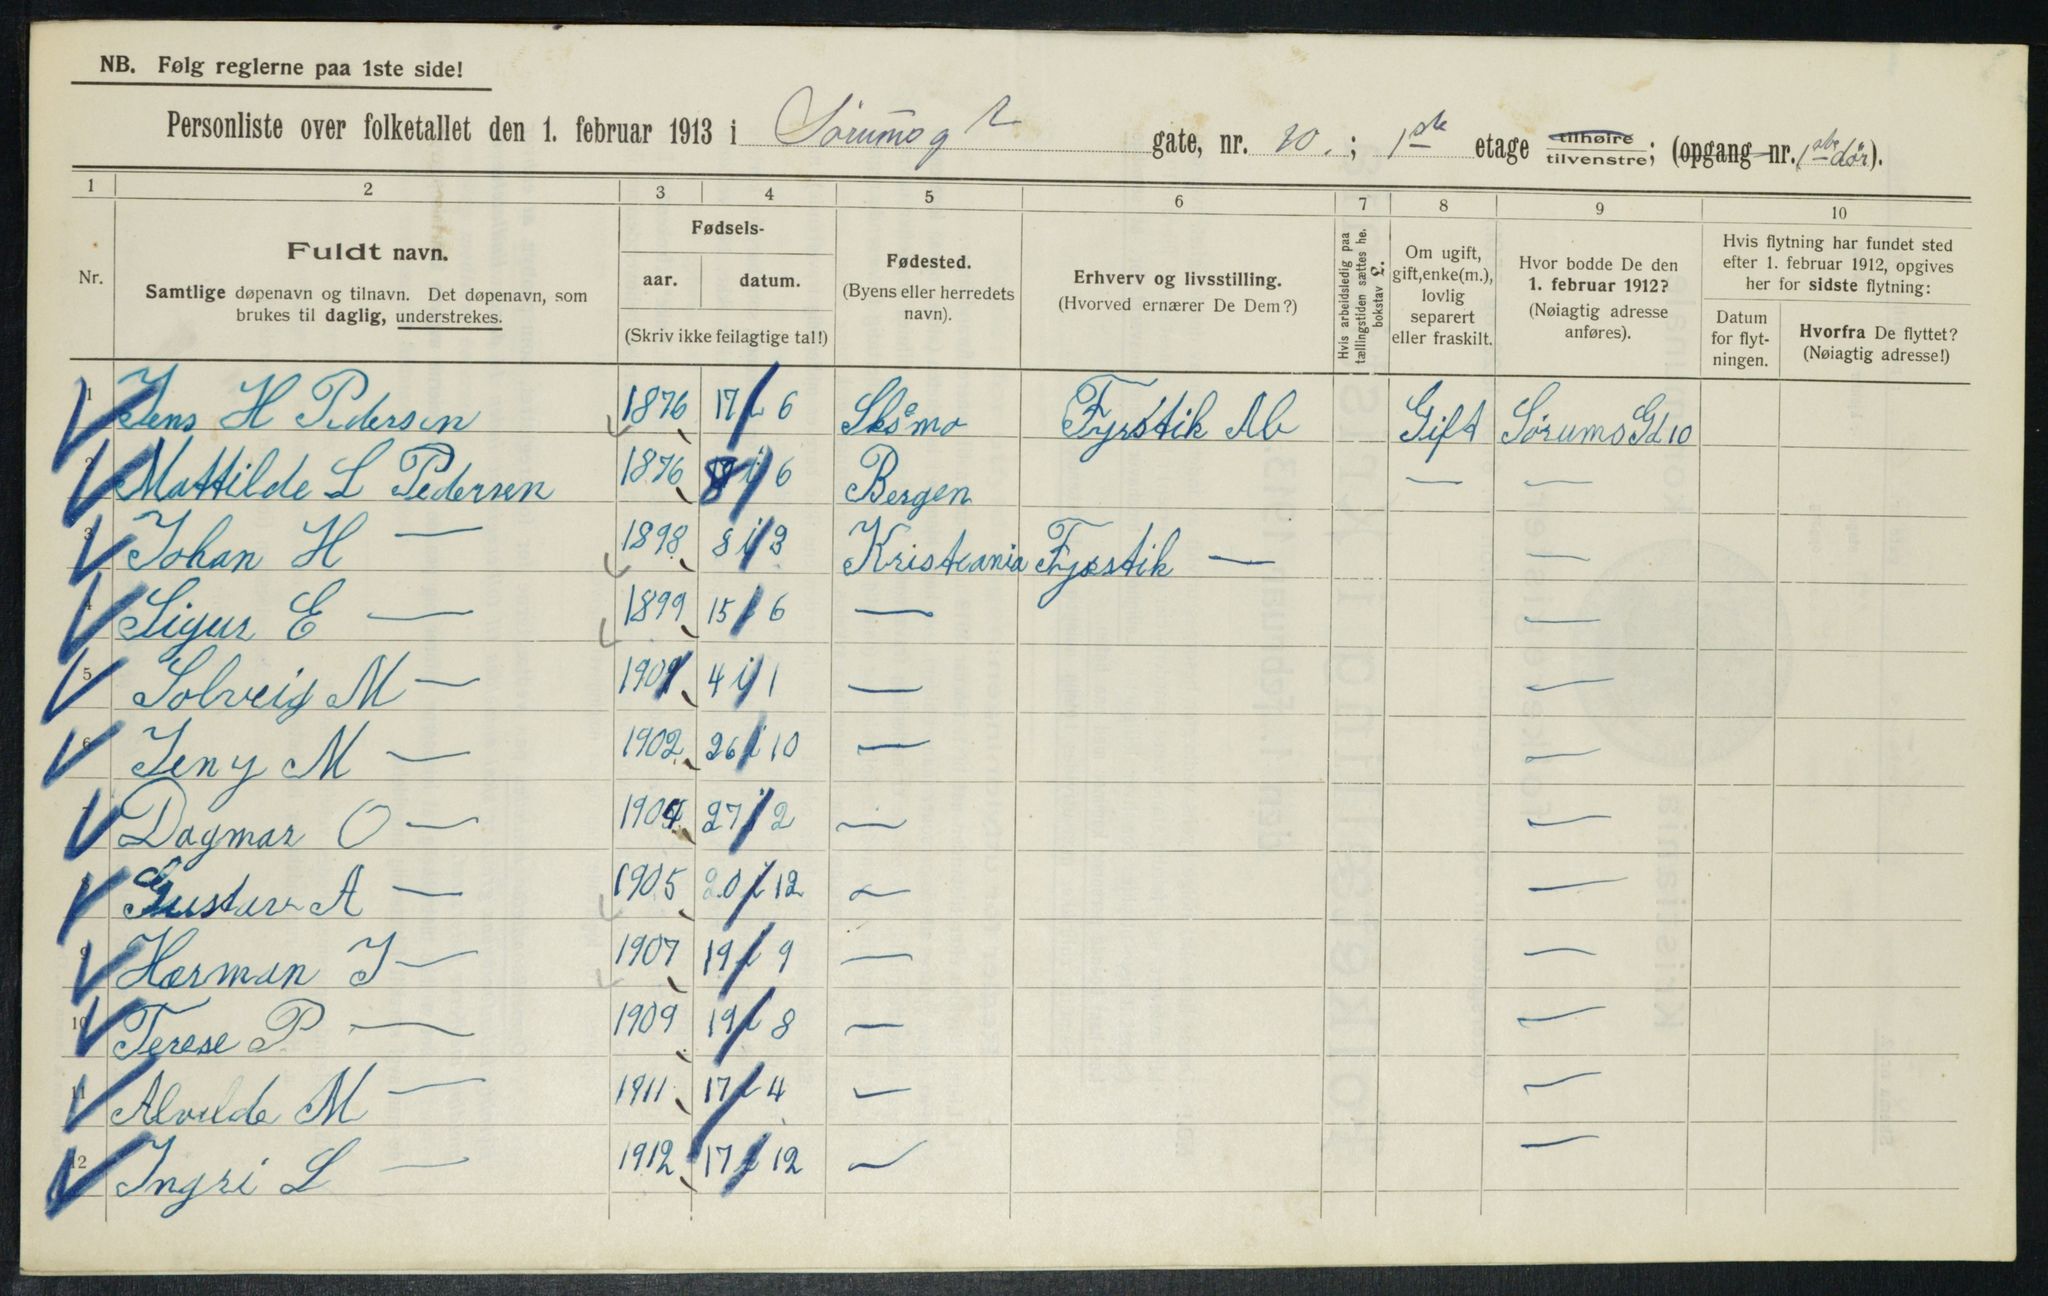 NB. Følg reglerne paa 1ste side!
Personliste over folketallet den 1. februar 1913 i Sørumsg gate, nr. 10. ; 1ste etage tilhøire tilvenstre; (opgang nr. 1 dør).
1 2 3 4 5 6 7 8 9 10
Nr.
Fuldt navn.
Samtlige døpenavn og tilnavn. Det døpenavn, som
brukes til daglig, understrekes.
Fødsels-
aar. datum.
(Skriv ikke feilagtige tal!)
Fødested.
(Byens eller herredets
navn).
Erhverv og livsstilling.
(Hvorved ernærer De Dem?)
Hvis arbeidsledig paa
tællingstiden sættes he.
bokstav L.
Om ugift,
gift, enke(m.),
lovlig
separert
eller fraskilt.
Hvor bodde De den
1. februar 1912?
(Nøiagtig adresse
anføres).
Hvis flytning har fundet sted
efter 1. februar 1912, opgives
her for sidste flytning:
Datum
for flyt-
ningen.
Hvorfra De flyttet?
(Nøiagtig adresse!)
1 Jens H Pedersen 1876 17/6 Skåmo Fyrstik Ab Gift Sørums Gd 10
2 Mattilde L Pedersen 1876 i 6 Bergen — —
3 Johan H — 1898 8 i 3 Kristiania Fyrstik — —
4 Sigur E — 1899 15/6 — —
5 Solveig M — 1901 4 i 1 — —
6 Jeny M — 1902 26 i 10 — —
7 Dagmar O — 1904 27 i 2 — —
8 Gustav A — 1905 20 i 12 — —
9 Herman J — 1907 19 i 9 — —
10 Terese P — 1909 19 i 8 — —
11 Alvilde M — 1911 17 i 4 — —
12 Ingri L — 1912 17 i 12 — —